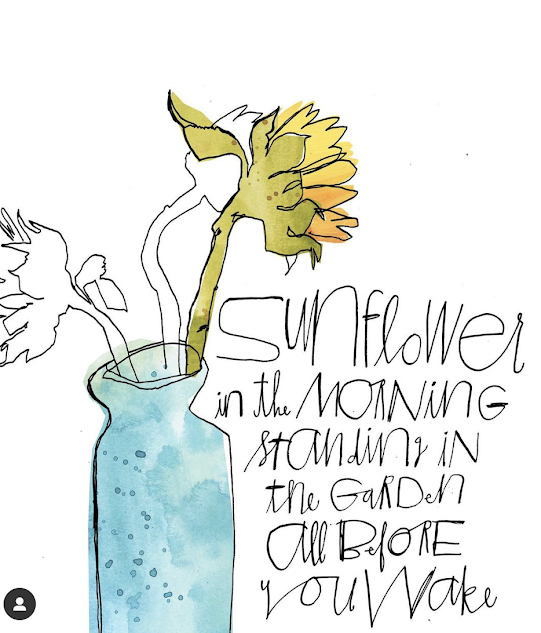 SunflOWer
in the MORNiNG
standing iN
the GaRDeN
All BefORE
you Wake